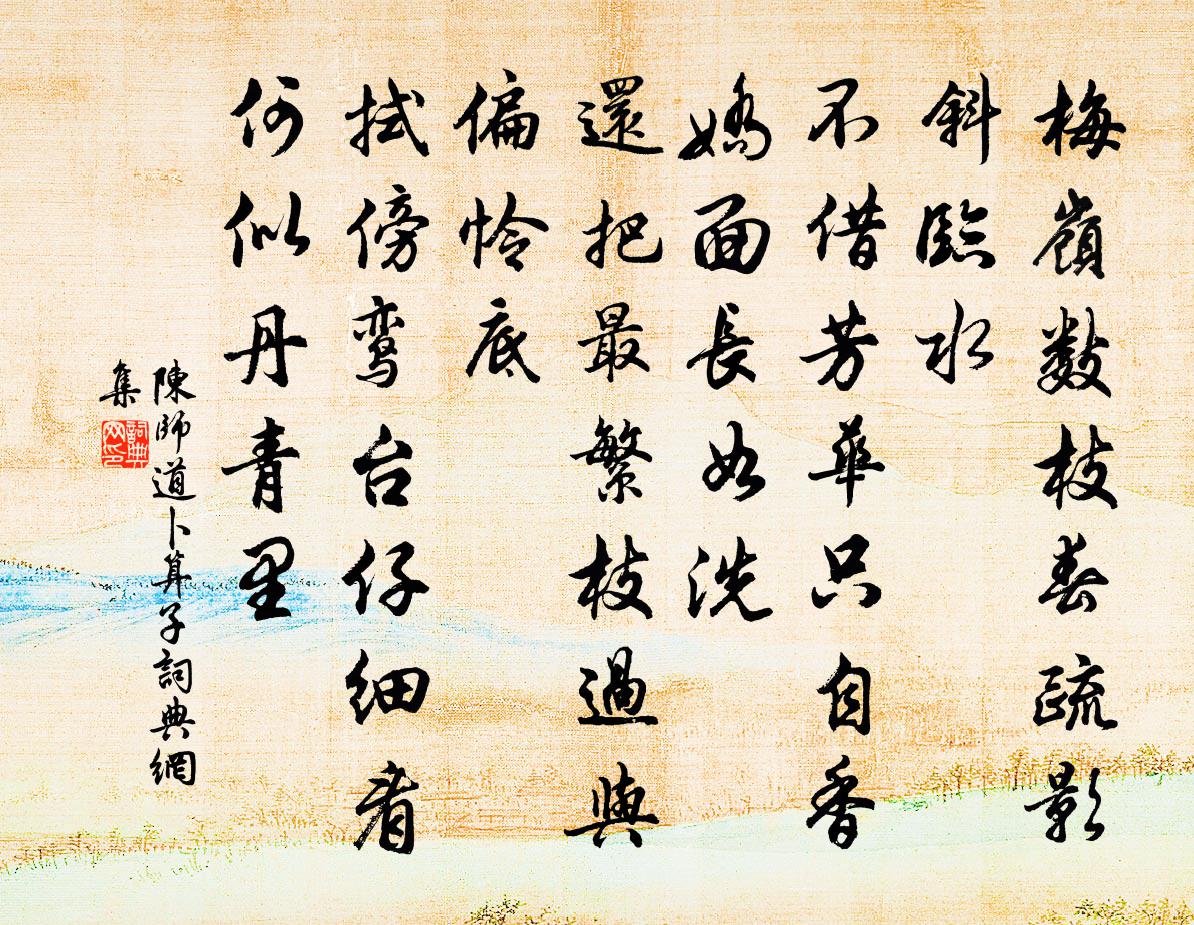 梅嶺数枝春疏影
斜臨水
不借芳華只自香
嬌面長如洗
還把最繁枝過與
偏怜底
拭傍鸾台仔细看
何似丹青里
陳師道卜算子詞典網
集
詞典
网印